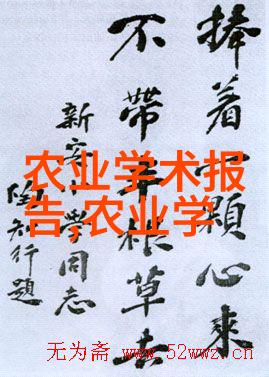 捧着一顆心來
不帶半根草去
新安小學同志
陶知行題
农业学术报
告,农业学
无为斋 www.52wwz.cn